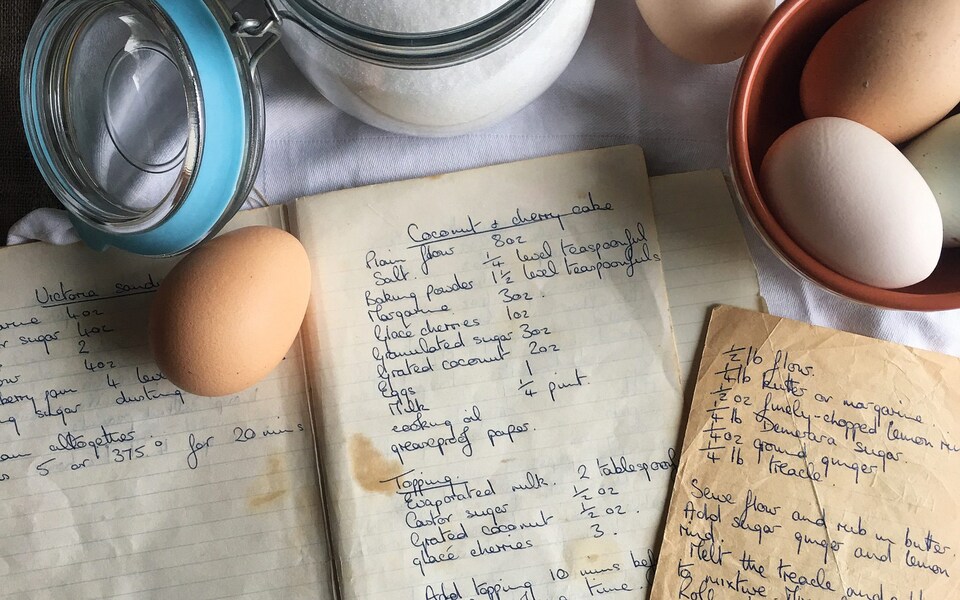 Victoria
4oz
sugar 4oz
2
4oz
jam 4
sugar dusting
altogether
5 or 375° for 20 mins
Coconut & cherry cake
Plain flow 8oz
Salt. 1/4 level teaspoonful
Baking powder 1 1/2 level teaspoonfuls
Margarine 3oz.
Glace cherries 1oz
Granulated sugar 3oz
Grated coconut 2oz
Eggs 1
Milk 1/4 pint.
cooking oil
greaseproof paper.
Topping
Evaporated milk. 2
Castor sugar 1/2 oz
Grated coconut 1/2 oz.
glacé cherries 3.
Add topping 10 mins
time
1/2 lb flow.
1/4 lb butter or margarine
1/2 oz finely-chopped lemon
1/4 lb Demerara sugar.
1/4 oz ground ginger.
1/4 lb treacle.
Sieve flow and rub in butter.
Add sugar ginger and lemon
rind.
Melt the treacle and
to mixture
Roll